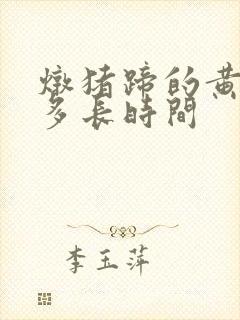 燉猪蹄的黄
多長時間
李玉萍